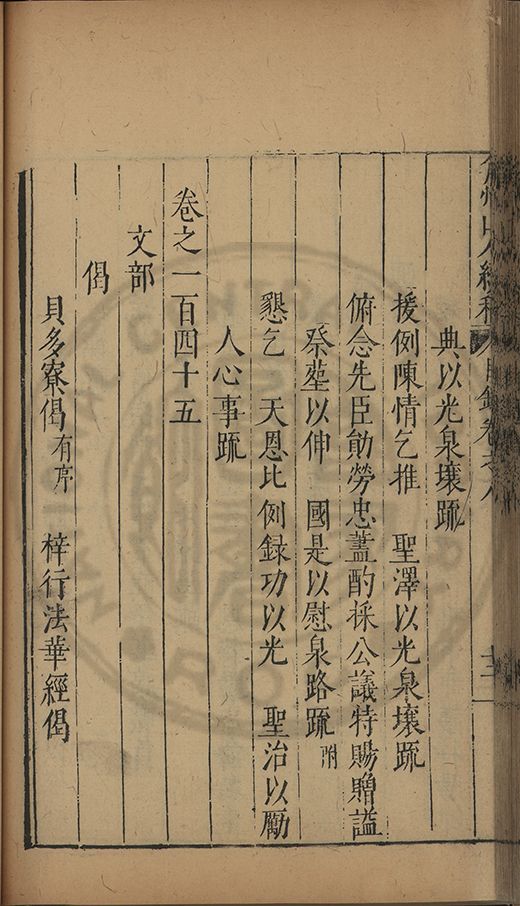 弇州山人續稿 目錄卷之八 十二
典以光泉壤疏
援例陳情乞推 聖澤以光泉壤疏
俯念先臣勛勞忠藎酌採公議特賜贈謚
祭塟以伸 國是以慰泉路疏 附
懇乞 天恩比例録功以光 聖治以勵
人心事疏
卷之一百四十五
文部
偈
貝多寮偈有序 梓行法華經偈